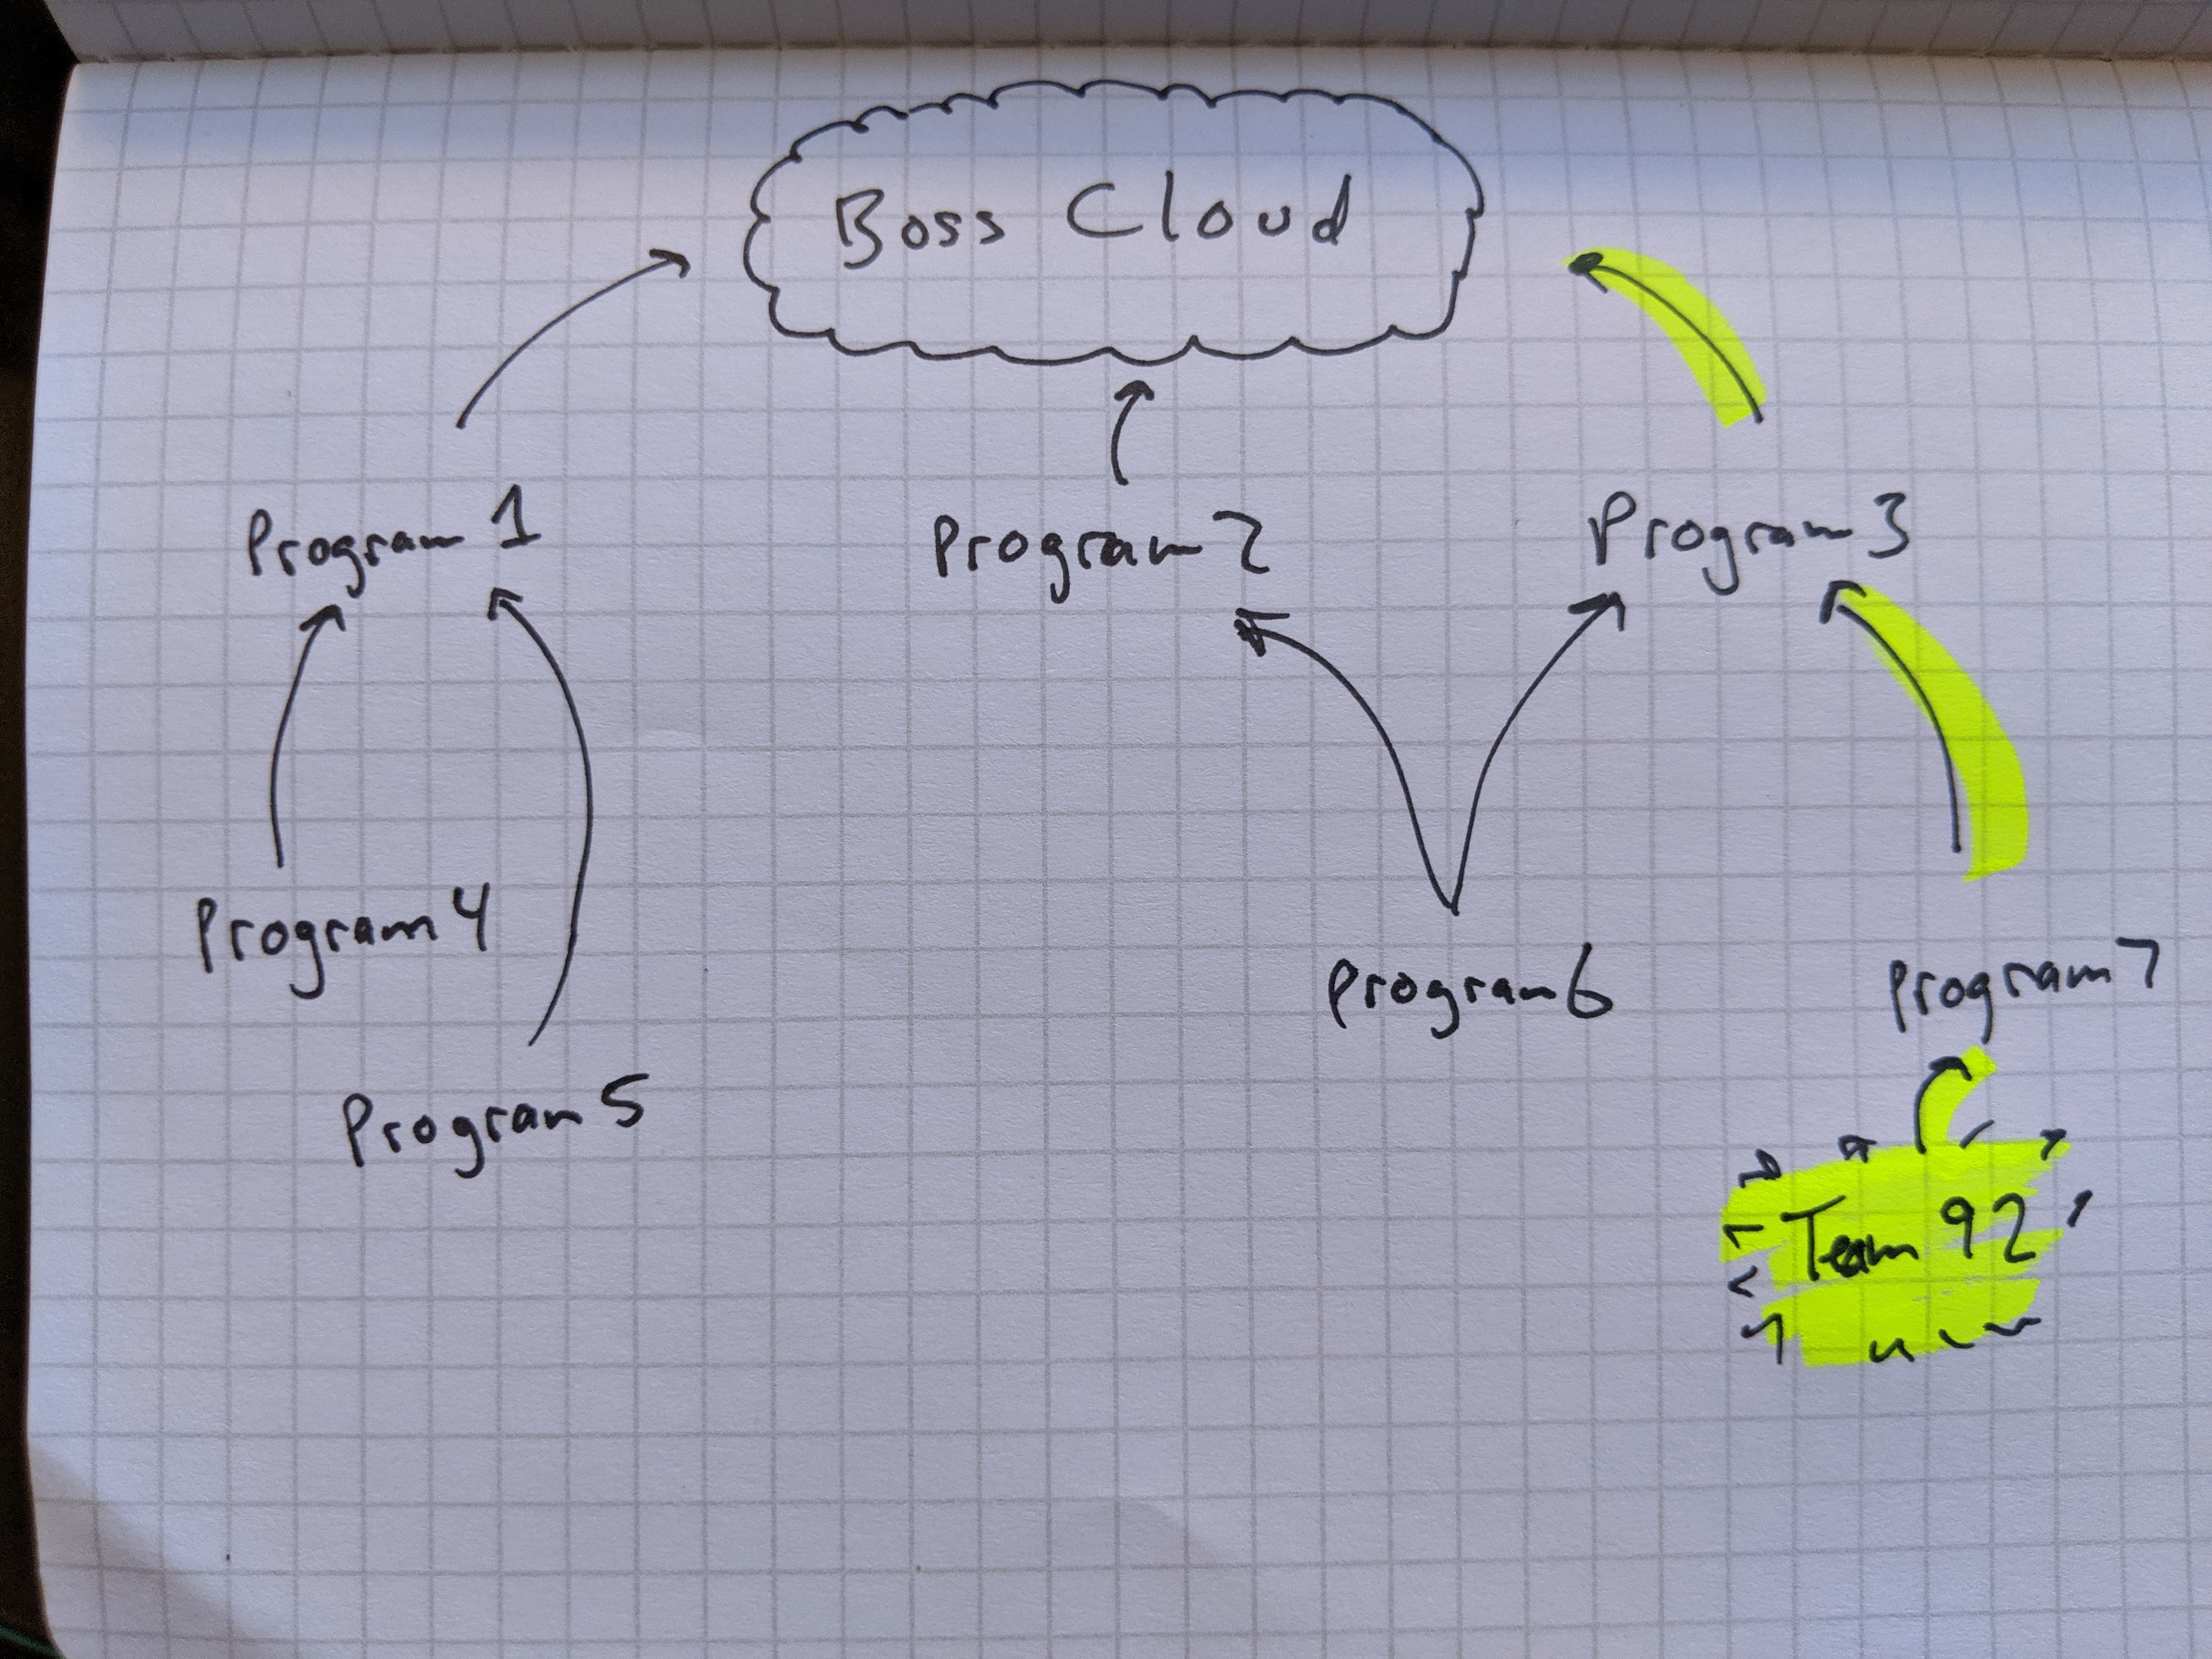 Boss Cloud
Program 1
Program 2
Program 3
Program 4
Program 5
Program 6
Program 7
Team 92